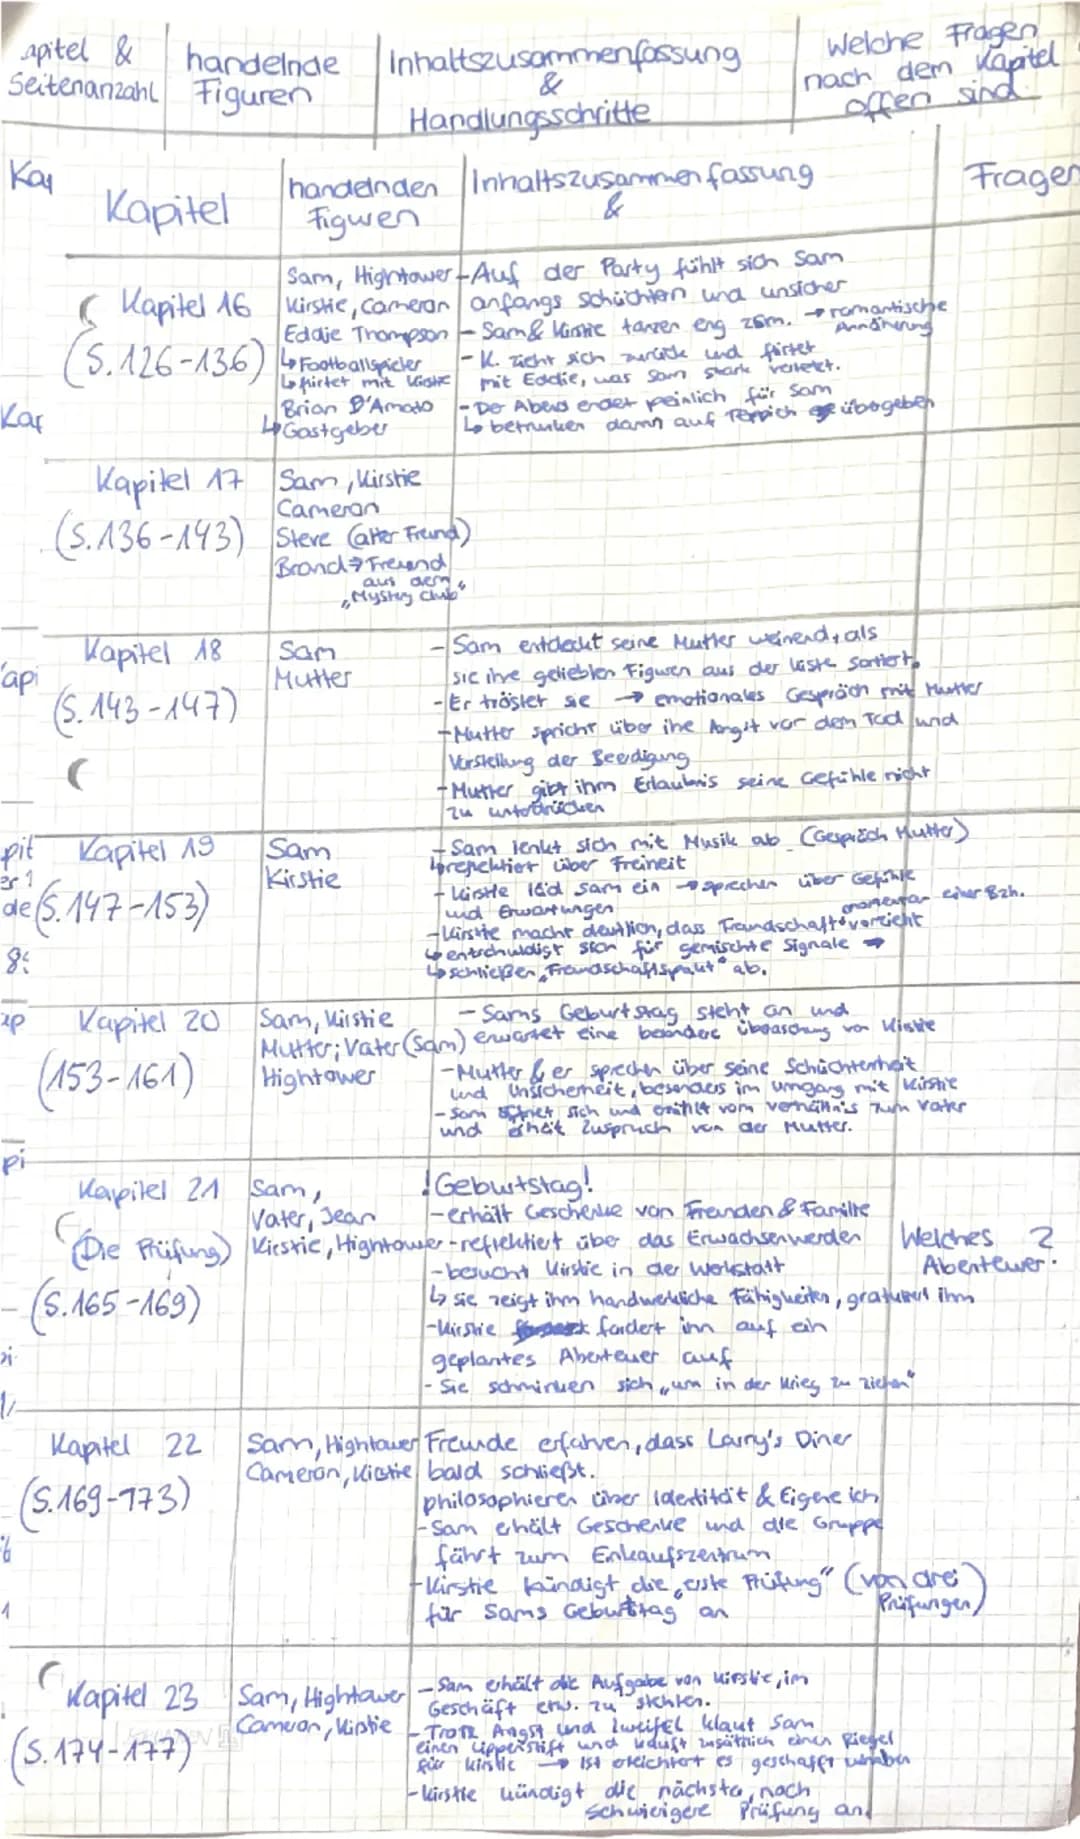 apitel & Seitenanzahl
handelnde Figuren
Inhaltszusammenfassung & Handlungsschritte
Welche Fragen nach dem Kapitel offen sind
Kap
Kapitel
handelnden Figuren
Inhaltszusammenfassung &
Fragen
Kapitel 16
(S.126-136)
Sam, Hightower
Kirstie, Cameron
Eddie Thompson
↳ Footballspieler
↳ flirtet mit Kirstie
Brian D'Amato
↳ Gastgeber
- Auf der Party fühlt sich Sam
anfangs schüchtern und unsicher
- Sam & Kirstie tanzen eng zsm. → romantische Annäherung
- K. zieht sich zurück und flirtet
mit Eddie, was Sam stark verletzt.
- Der Abend endet peinlich für Sam
↳ betrunken dann auf Teppich übergeben
Kap
Kapitel 17
(S.136-143)
Sam, Kirstie
Cameron
Steve (alter Freund)
Brand → Freund
aus dem
„Mystery Club"
Kapitel 18
(S.143-147)
Sam
Mutter
- Sam entdeckt seine Mutter weinend, als
sie ihre geliebten Figuren aus der Kiste sortiert.
- Er tröstet sie → emotionales Gespräch mit Mutter
- Mutter spricht über ihre Angst vor dem Tod und
Vorstellung der Beerdigung
- Mutter gibt ihm Erlaubnis seine Gefühle nicht
zu unterdrücken
api
pit
Kapitel 19
(S.147-153)
Sam
Kirstie
- Sam lenkt sich mit Musik ab (Gespräch Mutter)
↳ reflektiert über Freiheit
- Kirstie läd Sam ein → sprechen über Gefühle
und Erwartungen
- Kirstie macht deutlich, dass Freundschaft momentan einer Bzh. vorzieht
↳ entschuldigt sich für gemischte Signale →
↳ schließen „Freundschaftspakt" ab.
de
Kapitel 20
(153-161)
Sam, Kirstie
Mutter; Vater (Sam)
Hightower
- Sams Geburtstag steht an und
erwartet eine besondere Überraschung von Kirstie
- Mutter & er sprechen über seine Schüchternheit
und Unsicherheit, besonders im Umgang mit Kirstie
- Sam öffnet sich und erzählt vom Verhältnis zum Vater
und erhält Zuspruch von der Mutter.
pi
Kapitel 21
(Die Prüfung)
(S.165-169)
Sam,
Vater, Jean
Kirstie, Hightower
! Geburtstag!
- erhält Geschenke von Freunden & Familie
- reflektiert über das Erwachsenwerden
- besucht Kirstie in der Werkstatt
↳ sie zeigt ihm handwerkliche Fähigkeiten, gratuliert ihm
- Kirstie fordert ihn auf ein
geplantes Abenteuer auf
- Sie schminken sich „um in der Krieg zu ziehen"
Welches Abenteuer?
Kapitel 22
(S.169-173)
Sam, Hightower
Cameron, Kirstie
Freunde erfahren, dass Larry's Diner
bald schließt.
philosophieren über Identität & Eigene ich
- Sam erhält Geschenke und die Gruppe
fährt zum Einkaufszentrum
- Kirstie kündigt die „erste Prüfung" (von drei Prüfungen)
für Sams Geburtstag an
Kapitel 23
(S.174-177)
Sam, Hightower
Cameron, Kirstie
- Sam erhält die Aufgabe von Kirstie, im
Geschäft etw. zu stehlen.
- Trotz Angst und Zweifel klaut Sam
einen Lippenstift und kauft zusätzlich einen Riegel
für Kirstie → ist erleichtert es geschafft zu haben
- Kirstie kündigt die nächste, noch
schwierigere Prüfung an.